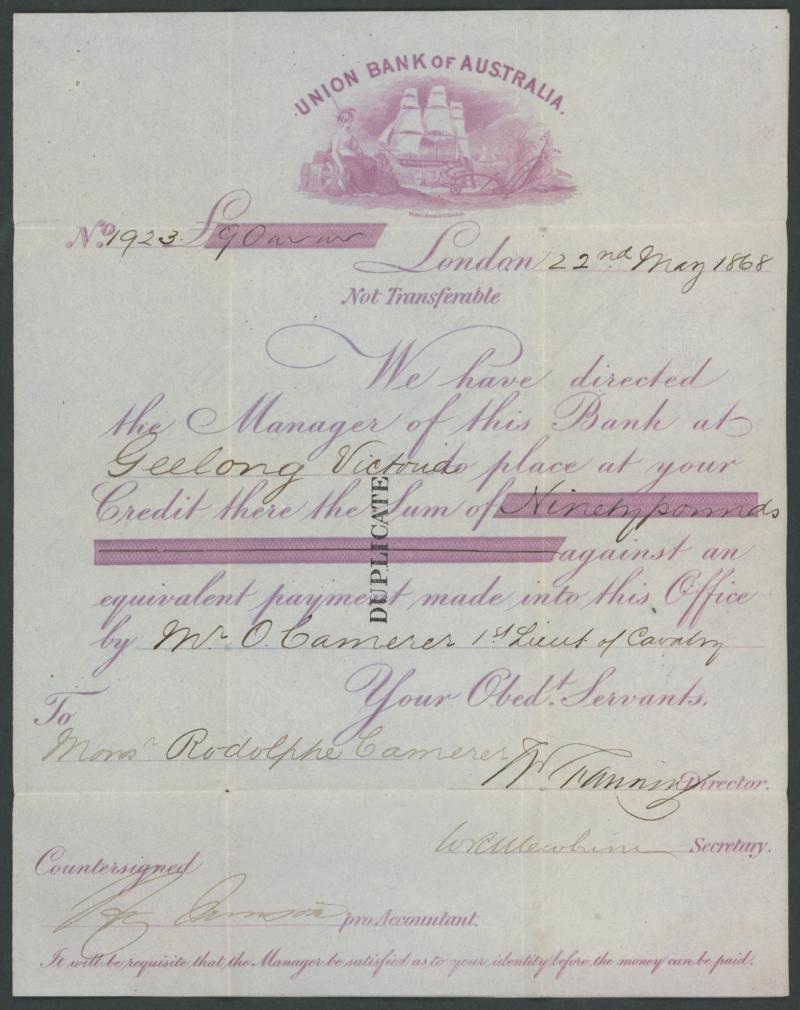 UNION BANK OF AUSTRALIA.
No. 1923. £90
London 22nd May 1868
Not Transferable
We have directed
the Manager of this Bank at
Geelong Victoria to place at your
Credit there the Sum of Ninety pounds
against an
equivalent payment made into this Office
by Mr O. Camerer 1st Lieut of Cavalry
DUPLICATE
Your Obedt. Servants.
To
Monsr Rodolphe Camerer
Director.
Secretary.
Countersigned
pro Accountant.
It will be requisite that the Manager be satisfied as to your identity before the money can be paid.